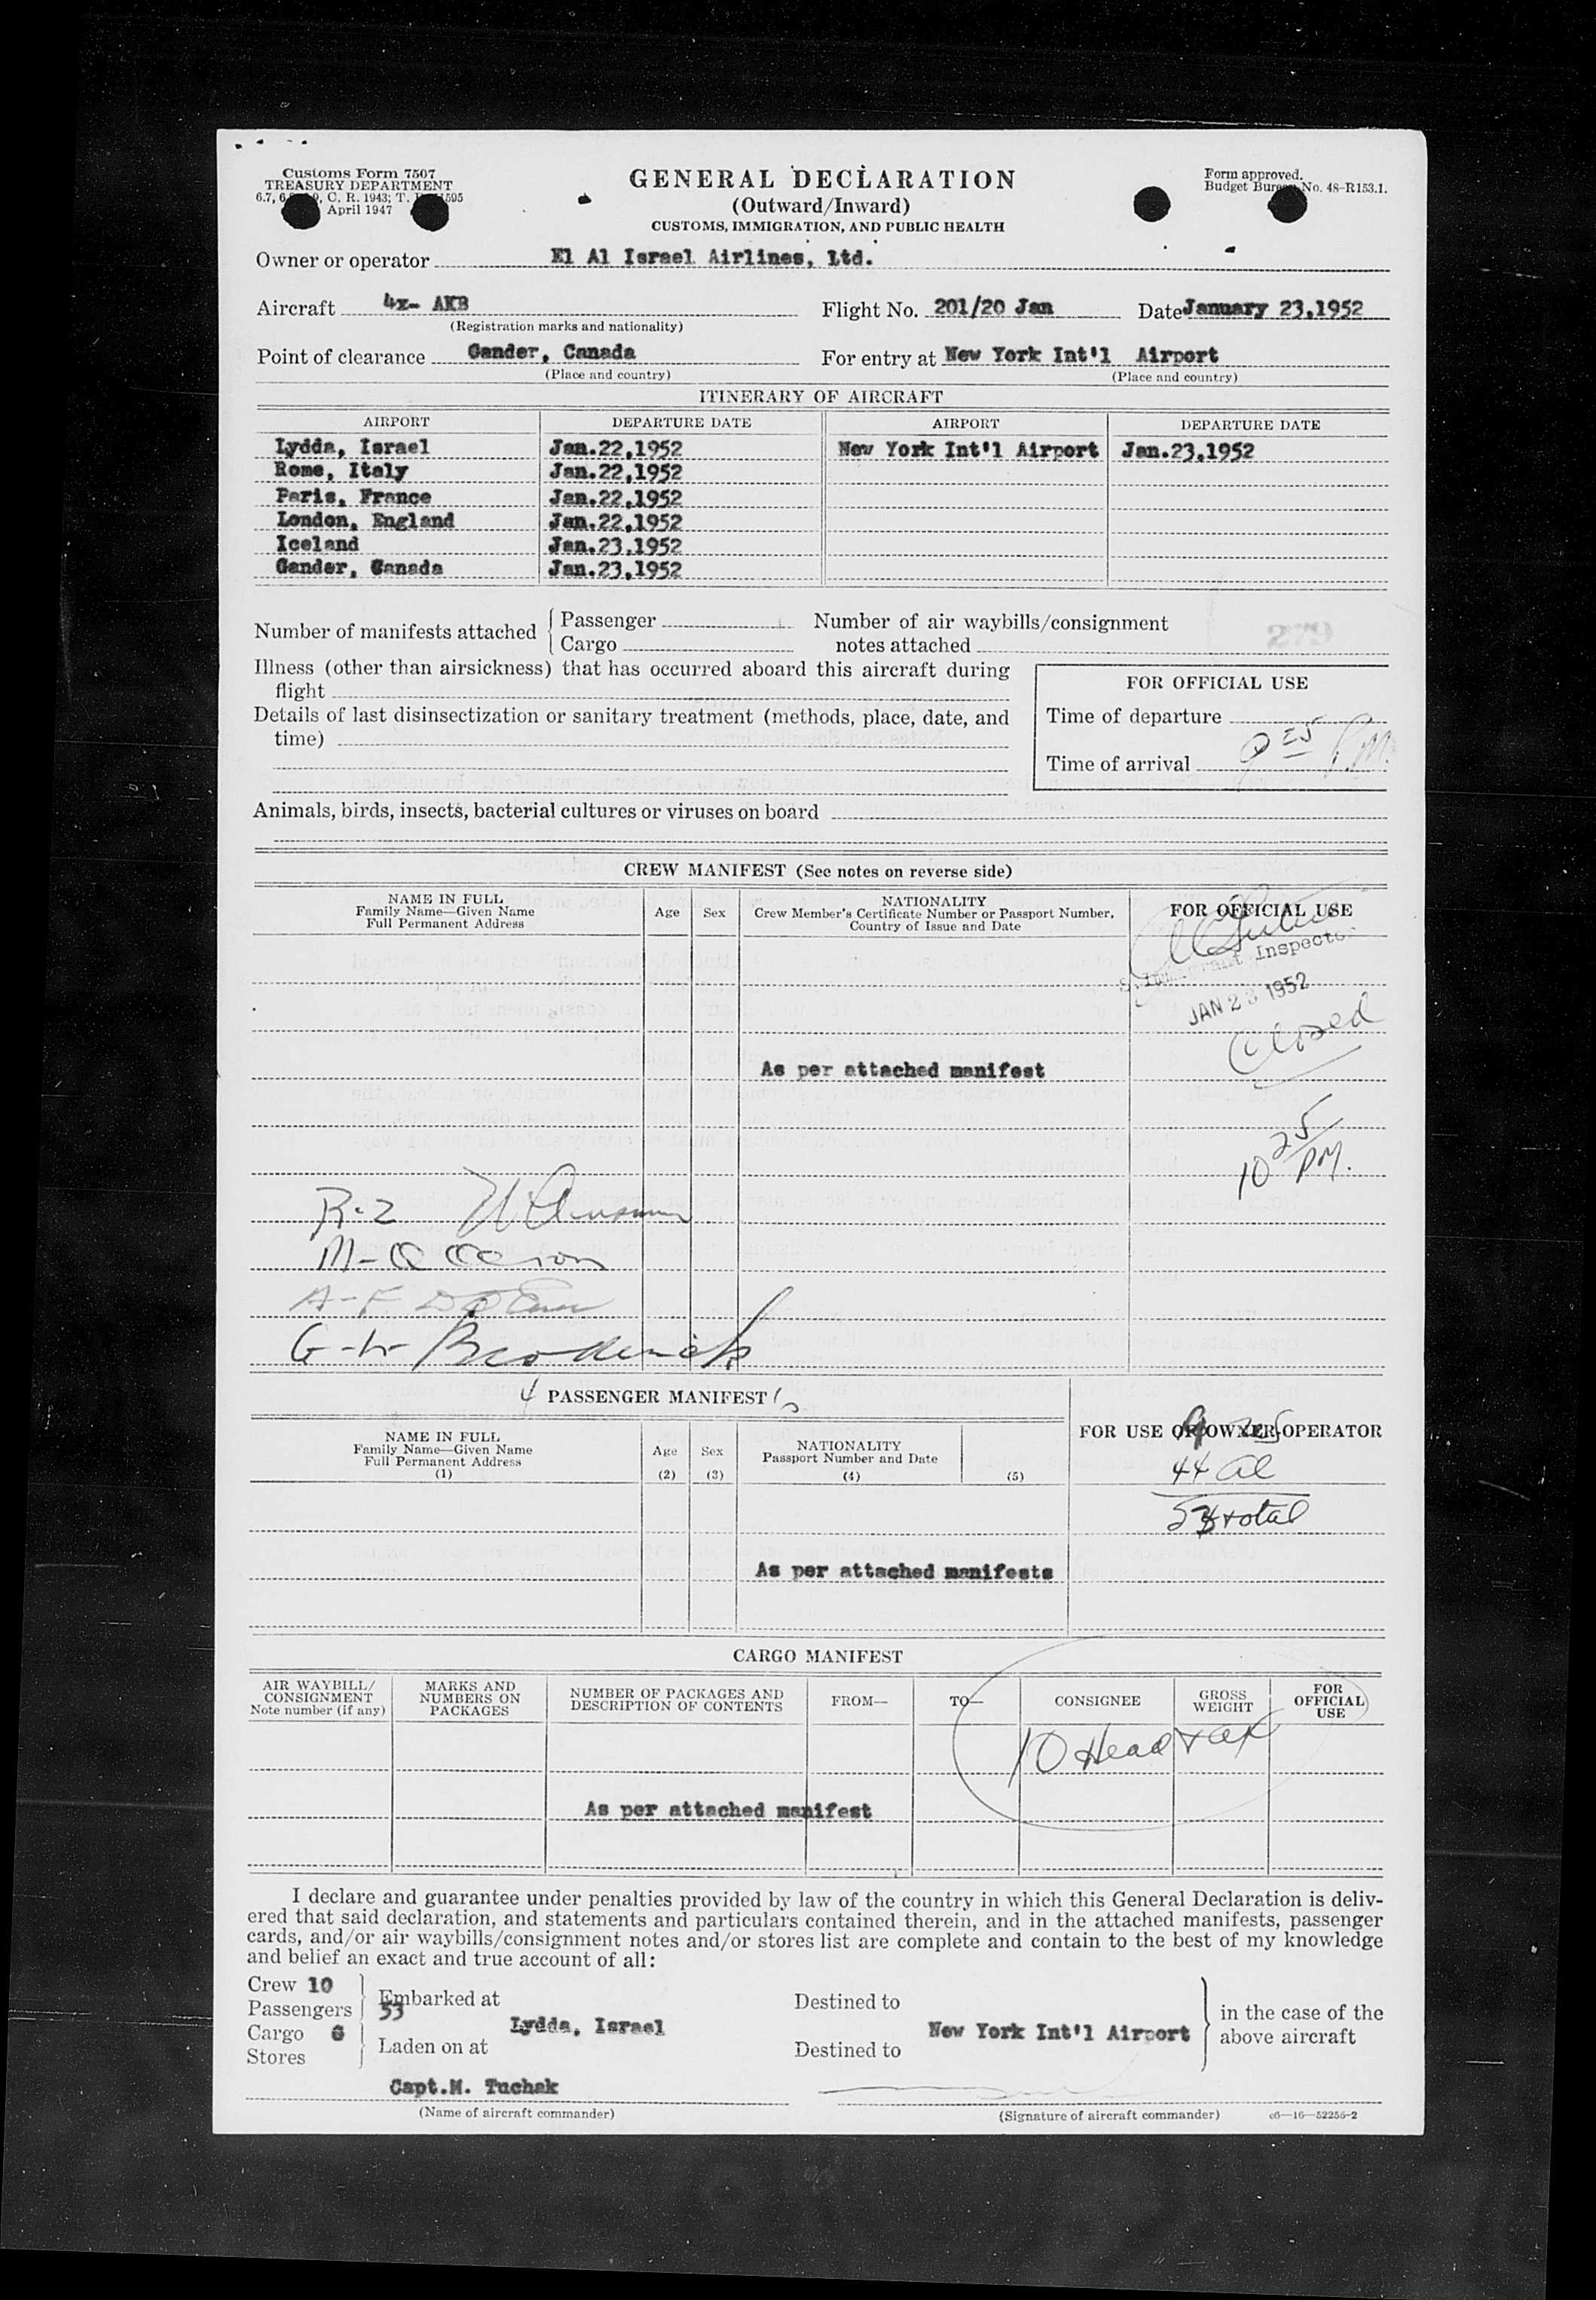 Customs Form 7507
TREASURY DEPARTMENT
C. R. 1943; T.
April 1947
GENERAL DECLARATION
(Outward/Inward)
CUSTOMS, IMMIGRATION, AND PUBLIC HEALTH
Form approved.
Budget Bureau No. 48-R153.1.
Owner or operator El Al Israel Airlines, Ltd.
Aircraft 4x- AKB Flight No. 201/20 Jan Date January 23,1952
(Registration marks and nationality)
Point of clearance Gander, Canada For entry at New York Int'l Airport
(Place and country) (Place and country)
ITINERARY OF AIRCRAFT
AIRPORT DEPARTURE DATE AIRPORT DEPARTURE DATE
Lydda, Israel Jan.22,1952 New York Int'l Airport Jan.23,1952
Rome, Italy Jan.22,1952
Paris, France Jan.22,1952
London, England Jan.22,1952
Iceland Jan.23,1952
Gander, Canada Jan.23,1952
Number of manifests attached Passenger
Cargo
Number of air waybills/consignment
notes attached
279
Illness (other than airsickness) that has occurred aboard this aircraft during
flight
Details of last disinsectization or sanitary treatment (methods, place, date, and
time)
FOR OFFICIAL USE
Time of departure
Time of arrival 9 25 P.M.
Animals, birds, insects, bacterial cultures or viruses on board
CREW MANIFEST (See notes on reverse side)
NAME IN FULL
Family Name—Given Name
Full Permanent Address
Age Sex
NATIONALITY
Crew Member's Certificate Number or Passport Number,
Country of Issue and Date
FOR OFFICIAL USE
Inspector
JAN 23 1952
Closed
As per attached manifest
10 25 PM.
R-2
M-Q
A-F
G-W Broderick
4 PASSENGER MANIFEST
NAME IN FULL
Family Name—Given Name
Full Permanent Address
(1)
Age
(2)
Sex
(3)
NATIONALITY
Passport Number and Date
(4) (5)
FOR USE OF OWNER-OPERATOR
9 US
44 al
53 total
As per attached manifests
CARGO MANIFEST
AIR WAYBILL/
CONSIGNMENT
Note number (if any)
MARKS AND
NUMBERS ON
PACKAGES
NUMBER OF PACKAGES AND
DESCRIPTION OF CONTENTS
FROM— TO— CONSIGNEE
GROSS
WEIGHT
FOR
OFFICIAL
USE
10 Head tax
As per attached manifest
I declare and guarantee under penalties provided by law of the country in which this General Declaration is deliv-
ered that said declaration, and statements and particulars contained therein, and in the attached manifests, passenger
cards, and/or air waybills/consignment notes and/or stores list are complete and contain to the best of my knowledge
and belief an exact and true account of all:
Crew 10
Passengers 53
Cargo
Stores
Embarked at
Lydda, Israel
Laden on at
Destined to
New York Int'l Airport
Destined to
in the case of the
above aircraft
Capt.M. Tuchak
(Name of aircraft commander) (Signature of aircraft commander) c6—16—52255-2